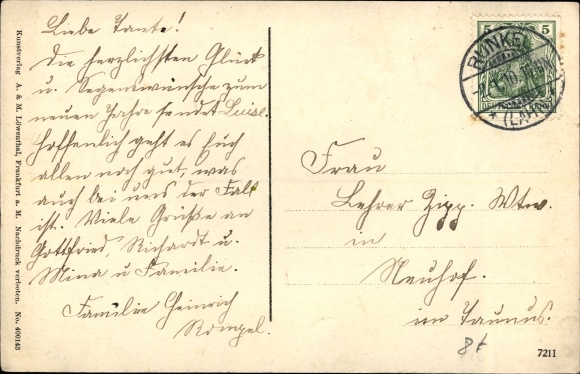 Liebe Tante!
Die herzlichsten Glück
u. Segenswünsche zum
neuen Jahre sendet Luise.
Hoffentlich geht es Euch
allen noch gut, was
auch bei uns der Fall
ist. Viele Grüße an
Gottfried, Richardt u.
Mina u Familie.
Familie Heinrich
Rompel.
Kunstverlag A. & M. Löwenthal, Frankfurt a. M. Nachdruck verboten. No. 400143
5 5
RUNKEL
(LAHN)
Frau
Lehrer Zipp. Wtw.
in
Neuhof.
im Taunus.
8f
7211